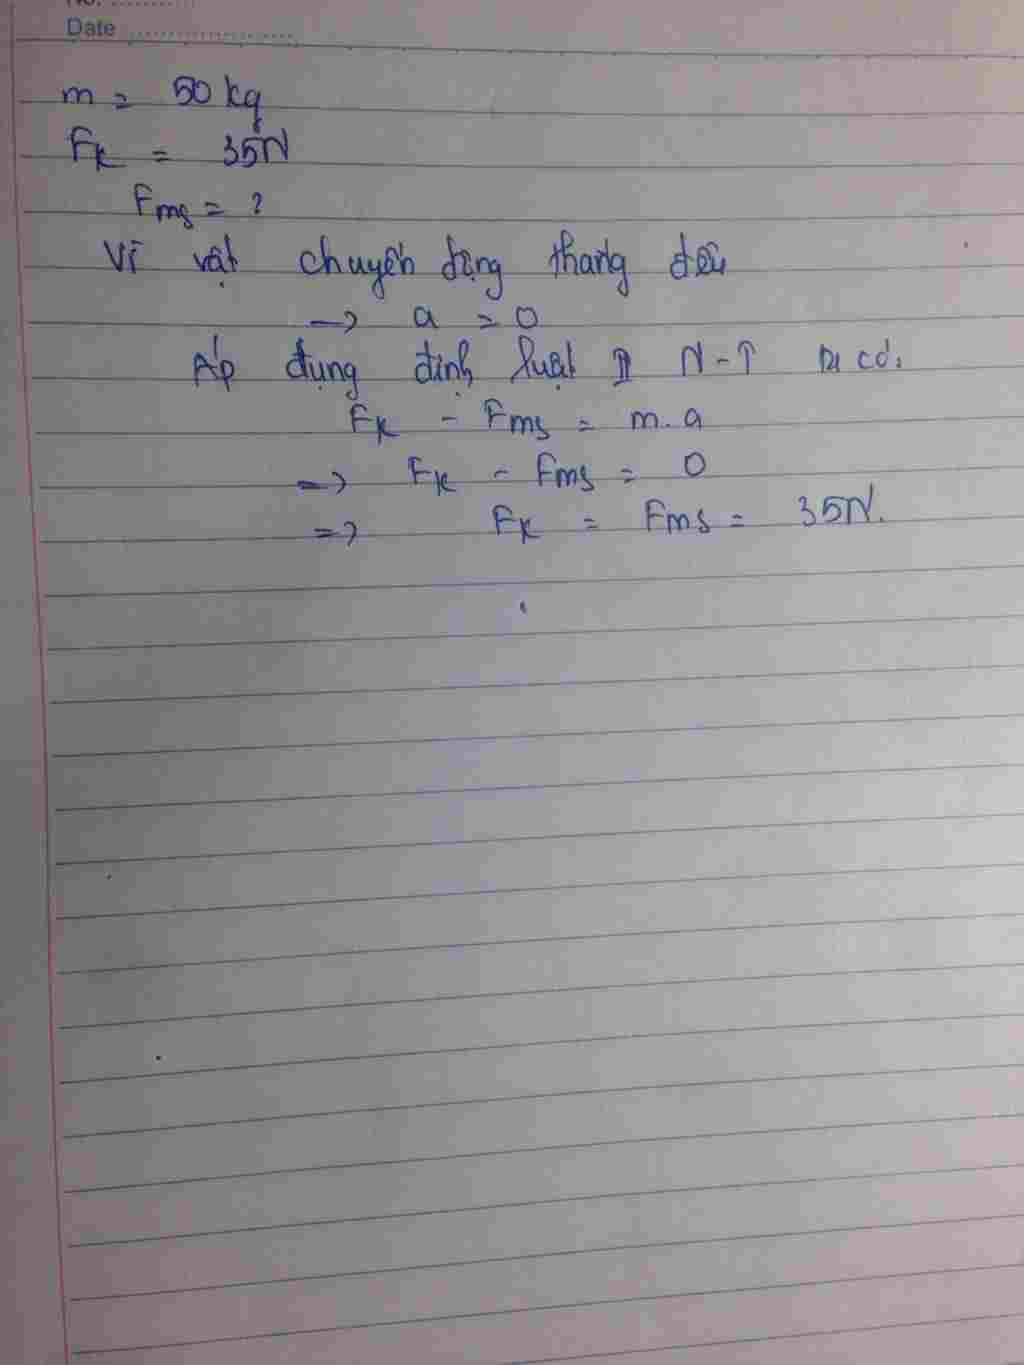 No. ............
Date ........................
m = 50 kg
Fk = 35N
Fms = ?
Vì vật chuyển động thẳng đều
→ a = 0
Áp dụng định luật II N-T ta có:
Fk - Fms = m.a
→ Fk - Fms = 0
=> Fk = Fms = 35N.